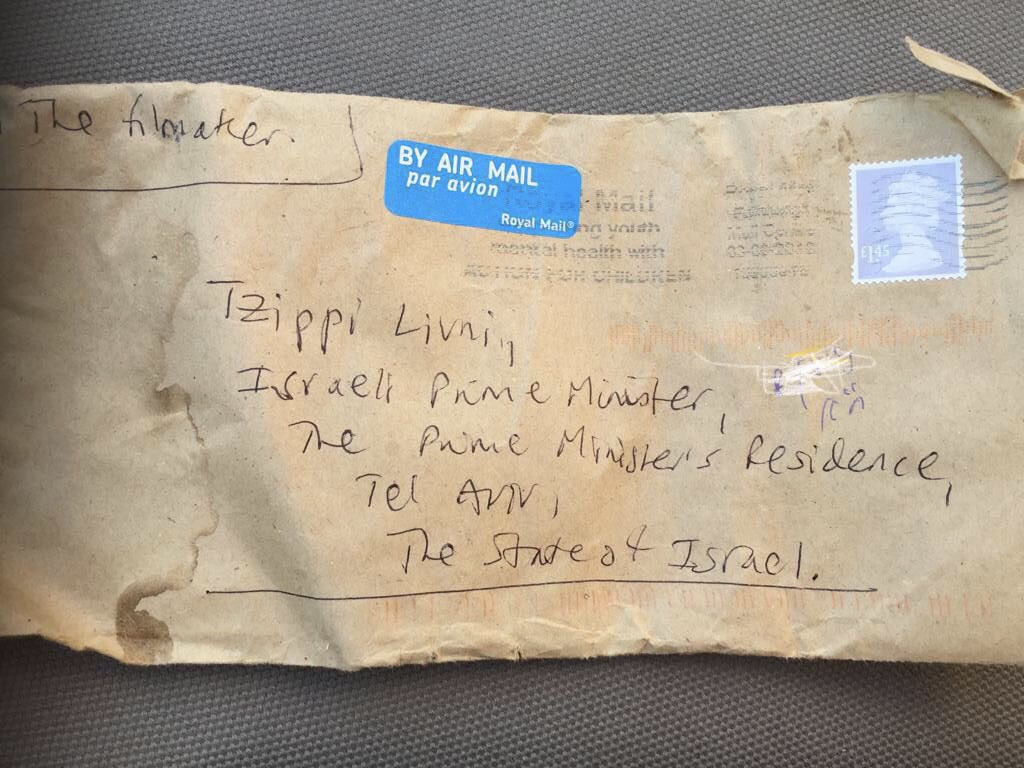 The filmaker.
BY AIR MAIL
par avion
Royal Mail®
Royal Mail
mental health with
ACTION FOR CHILDREN
£1.45
Tzippi Livni,
Israeli Prime Minister,
The Prime Minister's Residence,
Tel Aviv,
The State of Israel.